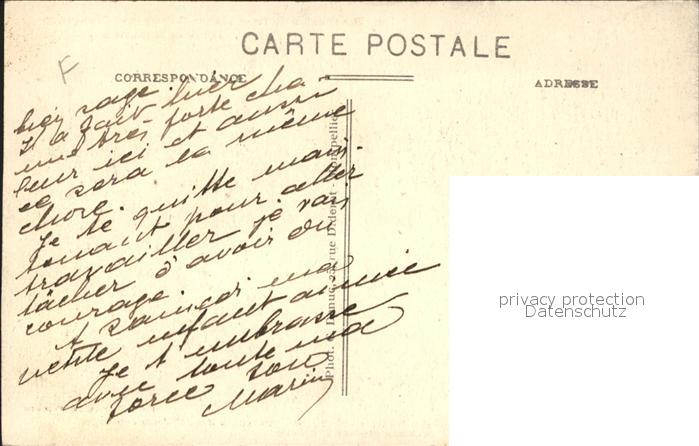 CARTE POSTALE
F
CORRESPONDANCE
ADRESSE
bien sage. hier
Il a fait
une très forte cha-
leur ici et aussi
ce sera la même
chose.
Je te quitte main-
tenant pour aller
travailler je vais
tâcher d'avoir du
courage.
A ma
petite enfant aimée
Je t'embrasse
avec toute ma
force ton
Marius
Phot. rue Diderot - Montpellier
privacy protection
Datenschutz